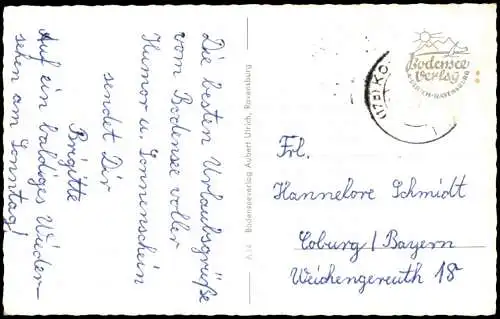 Die besten Urlaubsgrüße
vom Bodensee voller
Humor u. Sonnenschein
sendet Dir
Brigitte
Auf ein baldiges Wieder-
sehen am Sonntag!
A 14 Bodenseeverlag Aubert Ulrich, Ravensburg
Bodensee
Verlag
A. ULRICH - RAVENSBURG
(17b) KO
Frl.
Hannelore Schmidt
Coburg / Bayern
Weichengereuth 18